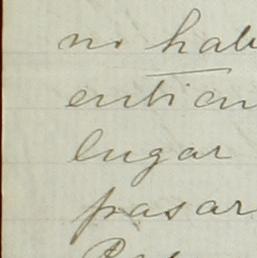 no hab
entien
lugar
pasar